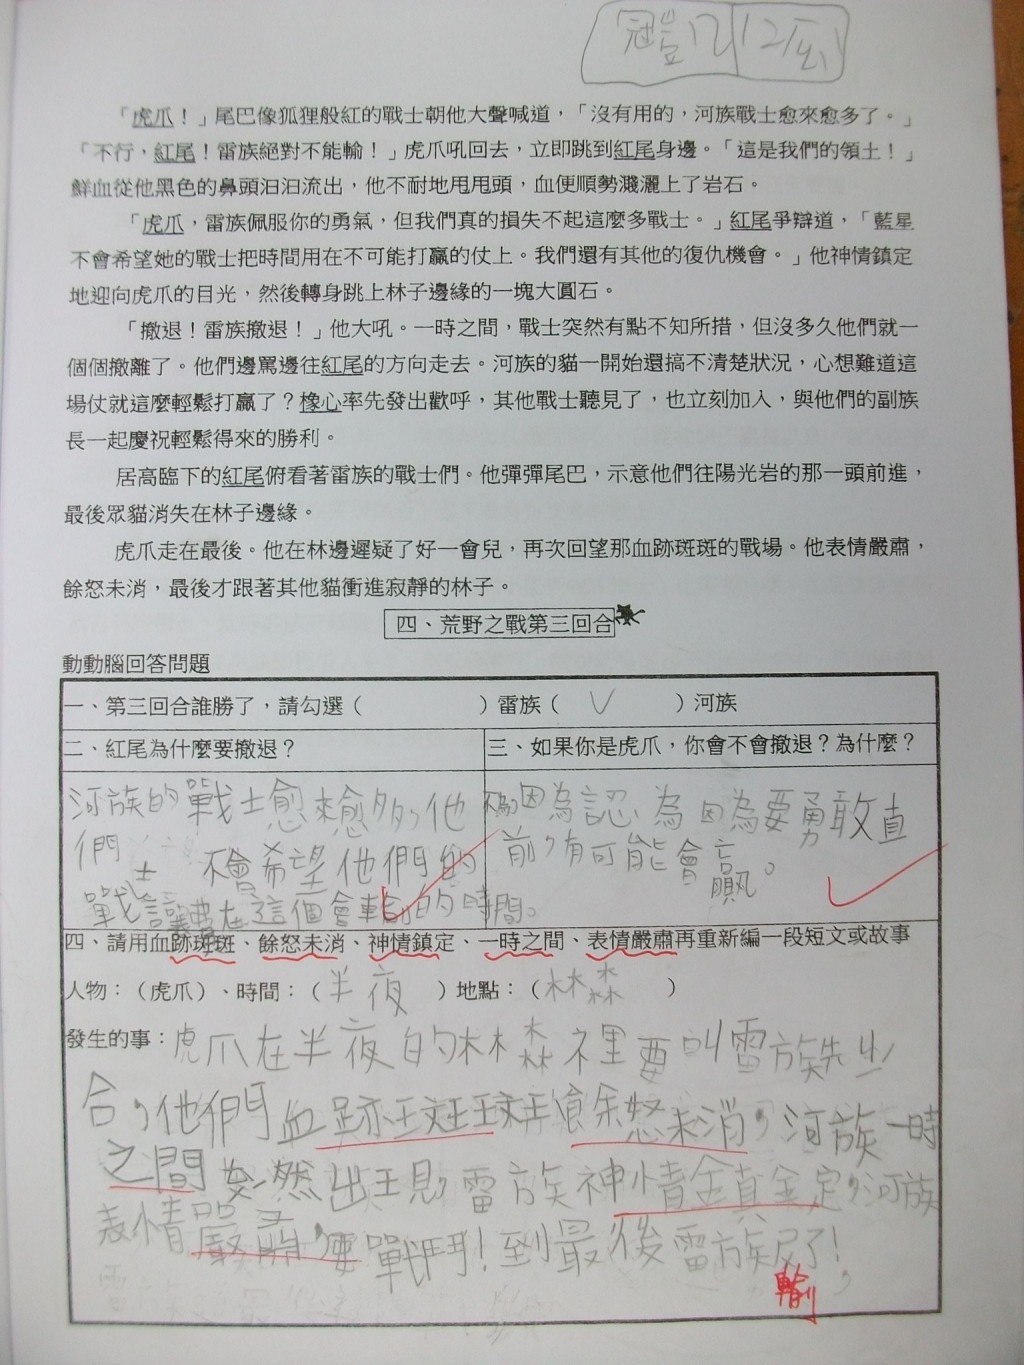 冠豈 12/
「虎爪！」尾巴像狐狸般紅的戰士朝他大聲喊道，「沒有用的，河族戰士愈來愈多了。」
「不行，紅尾！雷族絕對不能輸！」虎爪吼回去，立即跳到紅尾身邊。「這是我們的領土！」
鮮血從他黑色的鼻頭汩汩流出，他不耐地甩甩頭，血便順勢濺灑上了岩石。
「虎爪，雷族佩服你的勇氣，但我們真的損失不起這麼多戰士。」紅尾爭辯道，「藍星
不會希望她的戰士把時間用在不可能打贏的仗上。我們還有其他的復仇機會。」他神情鎮定
地迎向虎爪的目光，然後轉身跳上林子邊緣的一塊大圓石。
「撤退！雷族撤退！」他大吼。一時之間，戰士突然有點不知所措，但沒多久他們就一
個個撤離了。他們邊罵邊往紅尾的方向走去。河族的貓一開始還搞不清楚狀況，心想難道這
場仗就這麼輕鬆打贏了？橡心率先發出歡呼，其他戰士聽見了，也立刻加入，與他們的副族
長一起慶祝輕鬆得來的勝利。
居高臨下的紅尾俯看著雷族的戰士們。他彈彈尾巴，示意他們往陽光岩的那一頭前進，
最後眾貓消失在林子邊緣。
虎爪走在最後。他在林邊遲疑了好一會兒，再次回望那血跡斑斑的戰場。他表情嚴肅，
餘怒未消，最後才跟著其他貓衝進寂靜的林子。
四、荒野之戰第三回合
動動腦回答問題
一、第三回合誰勝了，請勾選（ ）雷族（ ✓ ）河族
二、紅尾為什麼要撤退？
河族的戰士愈來愈多，他
們 不會希望他們的
戰士 費在這個會輸的時間。
三、如果你是虎爪，你會不會撤退？為什麼？
因為認為因為要勇敢直
前，有可能會贏。
四、請用血跡斑斑、餘怒未消、神情鎮定、一時之間、表情嚴肅再重新編一段短文或故事
人物：（虎爪）、時間：（半夜）地點：（林森）
發生的事：虎爪在半夜的林森裡要叫雷族先
合，他們血跡斑斑餘怒未消，河族一時
之間突然出現，雷族神情鎮定，河族
表情嚴肅，要戰鬥！到最後雷族 了！
輸